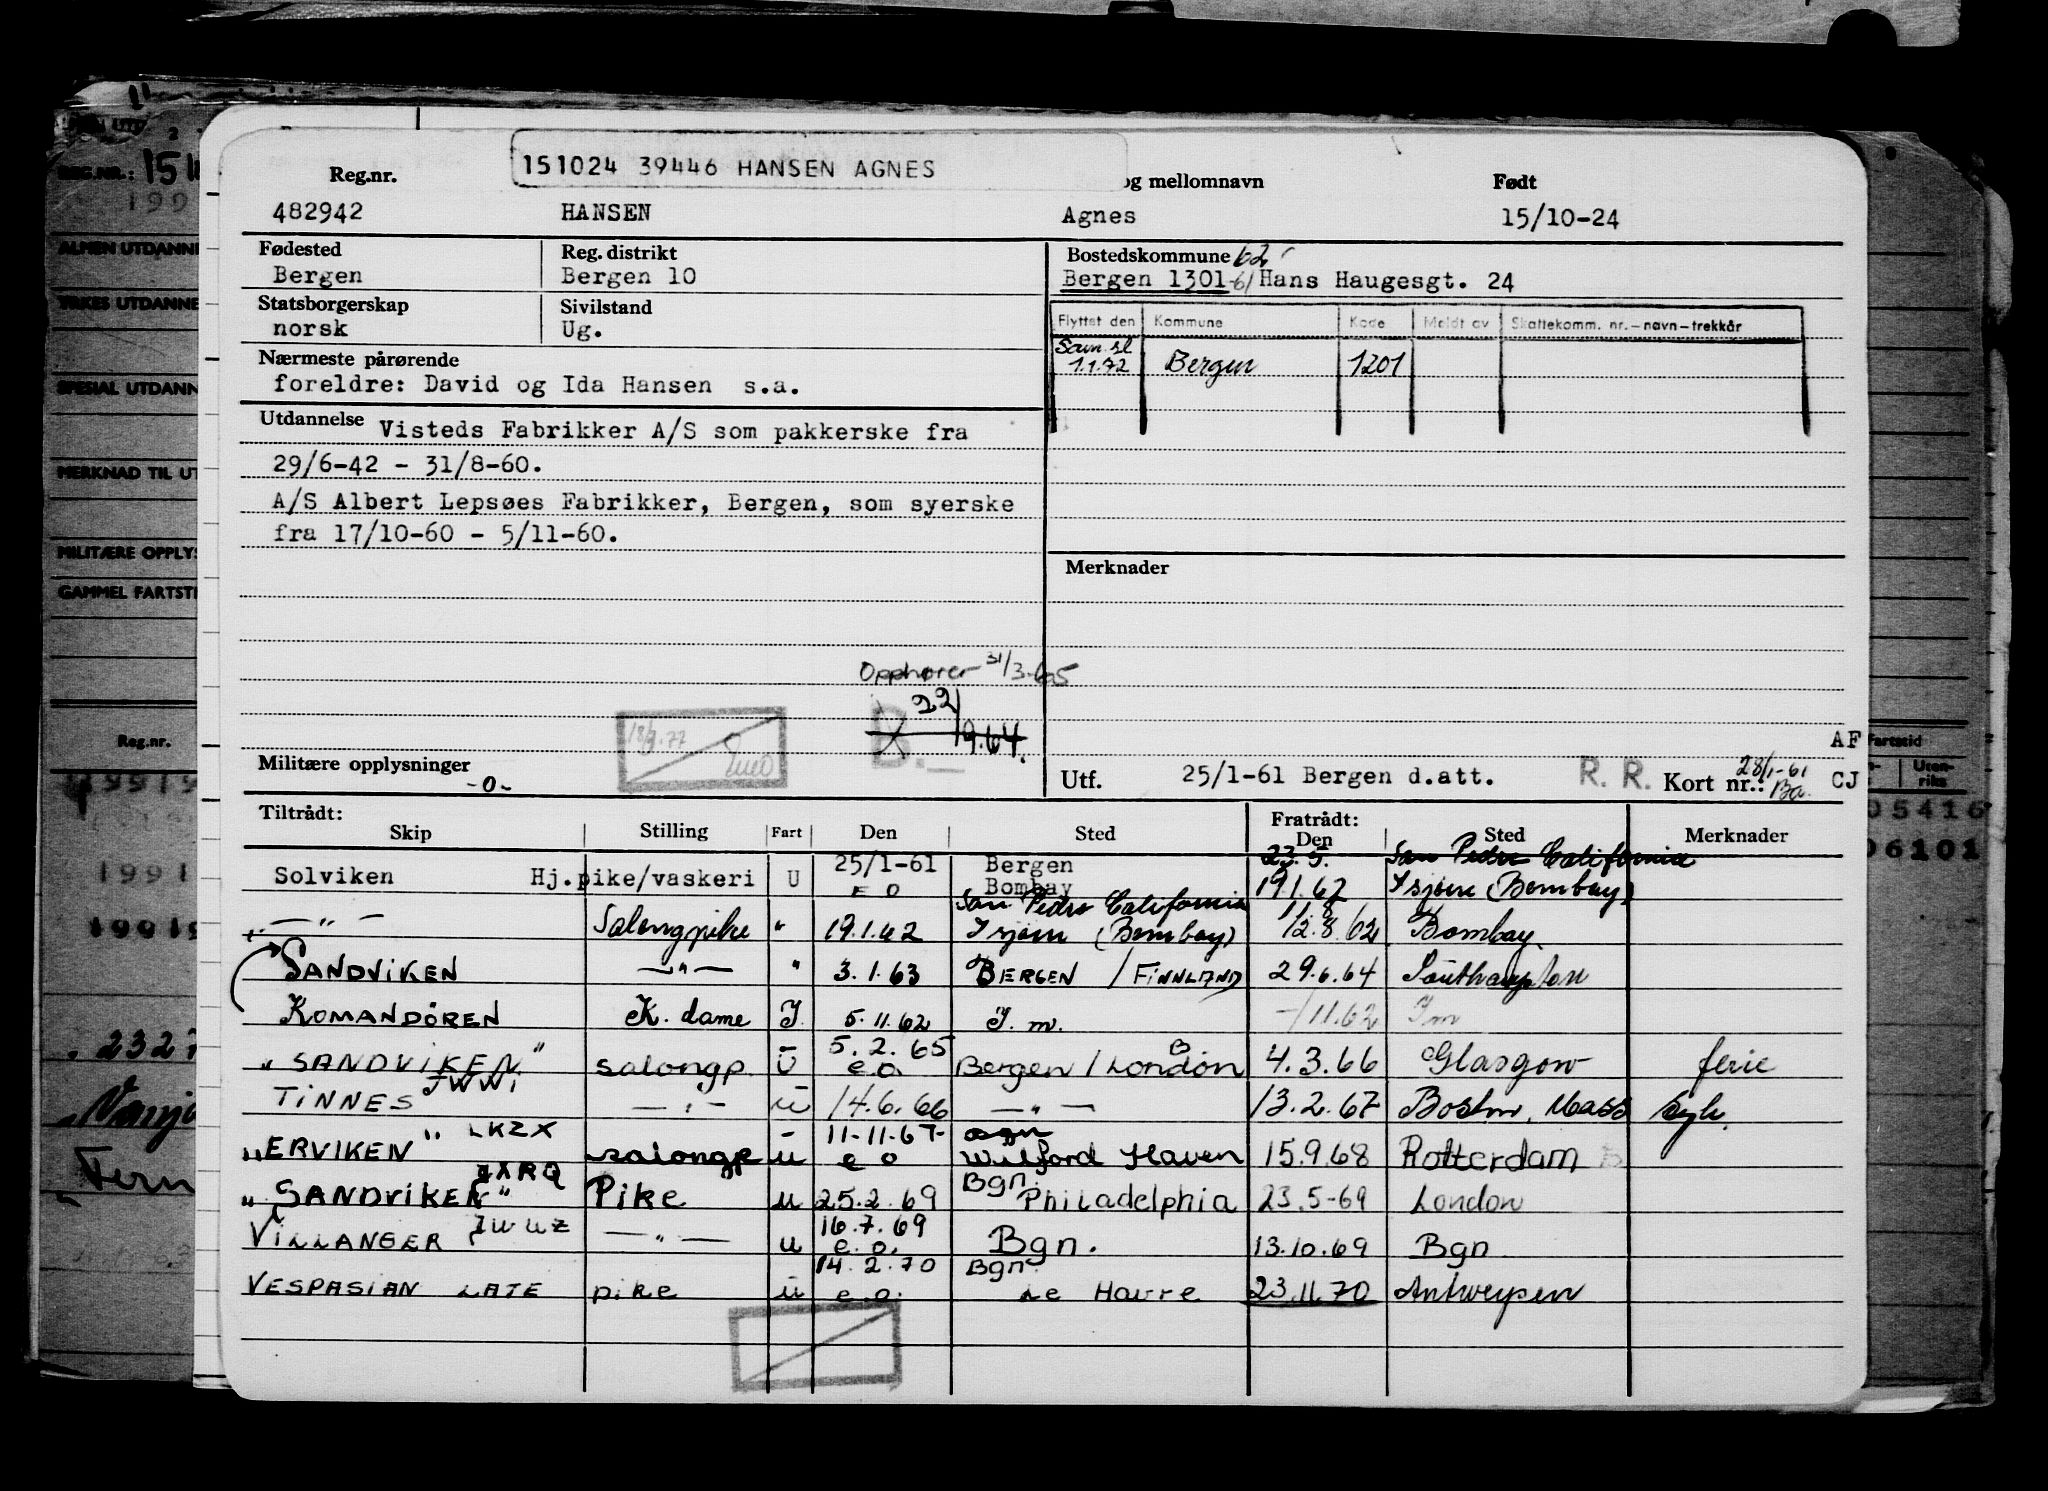 151024 39446 HANSEN AGNES
Reg.nr. og mellomnavn Født
482942 HANSEN Agnes 15/10-24
Fødested Reg. distrikt Bostedskommune 62
Bergen Bergen 10 Bergen 1301-61 Hans Haugesgt. 24
Statsborgerskap Sivilstand
norsk Ug.
Flyttet den Kommune Kode Meldt av Skattekomm. nr.-navn-trekkår
Sam.sl
1.1.72 Bergen 1201
Nærmeste pårørende
foreldre: David og Ida Hansen s.a.
Utdannelse Visteds Fabrikker A/S som pakkerske fra
29/6-42 - 31/8-60.
A/S Albert Lepsøes Fabrikker, Bergen, som syerske
fra 17/10-60 - 5/11-60.
Merknader
Opphører 31/3-65
22/9.64.
B.
18/9.77
Militære opplysninger
-o-
Utf. 25/1-61 Bergen d.att. R. R. Kort nr.: 28/1-61 Ba.
AF
CJ
Tiltrådt: Fratrådt:
Skip Stilling Fart Den Sted Den Sted Merknader
25/1-61 Bergen 23.5. San Pedro California
Solviken Hj.pike/vaskeri U E O Bombay 19.1.62 Isjøen (Bombay)
San Pedro California 11/8
—"— Salongpike " 19.1.62 Isjøen (Bombay) 12.8.62 Bombay.
SANDVIKEN —"— " 3.1.63 BERGEN / FINNLAND 29.6.64 Southampton
KOMANDÖREN K. dame I. 5.11.62 I. m. -/11.62 Im
5.2.65
"SANDVIKEN" salongp. U e.o. Bergen / London 4.3.66 Glasgow ferie
JWWI
TINNES —"— U 14.6.66 —"— 13.2.67 Boston, Mass syk.
LKZX 11-11-67- Bgn
"ERVIKEN" salongp u e o Wilford Haven 15.9.68 Rotterdam
JXRQ Bgn.
"SANDVIKEN" Pike u 25.2.69 Philadelphia 23.5-69 London
JWUZ 16.7.69
VILLANGER —"— u e.o. Bgn. 13.10.69 Bgn
14.2.70 Bgn.
VESPASIAN LATE pike u e.o. Le Havre 23.11.70 Antwerpen
REG.NR.: 151
199
ALMEN UTDANNE
YRKES UTDANNE
SPESIAL UTDANN
MERKNAD TIL UT
MILITÆRE OPPLYS
GAMMEL FARTSTI
Reg.nr.
19919
1991
19919
2327
Fern
Fartstid
Uten-
riks
05416
06101